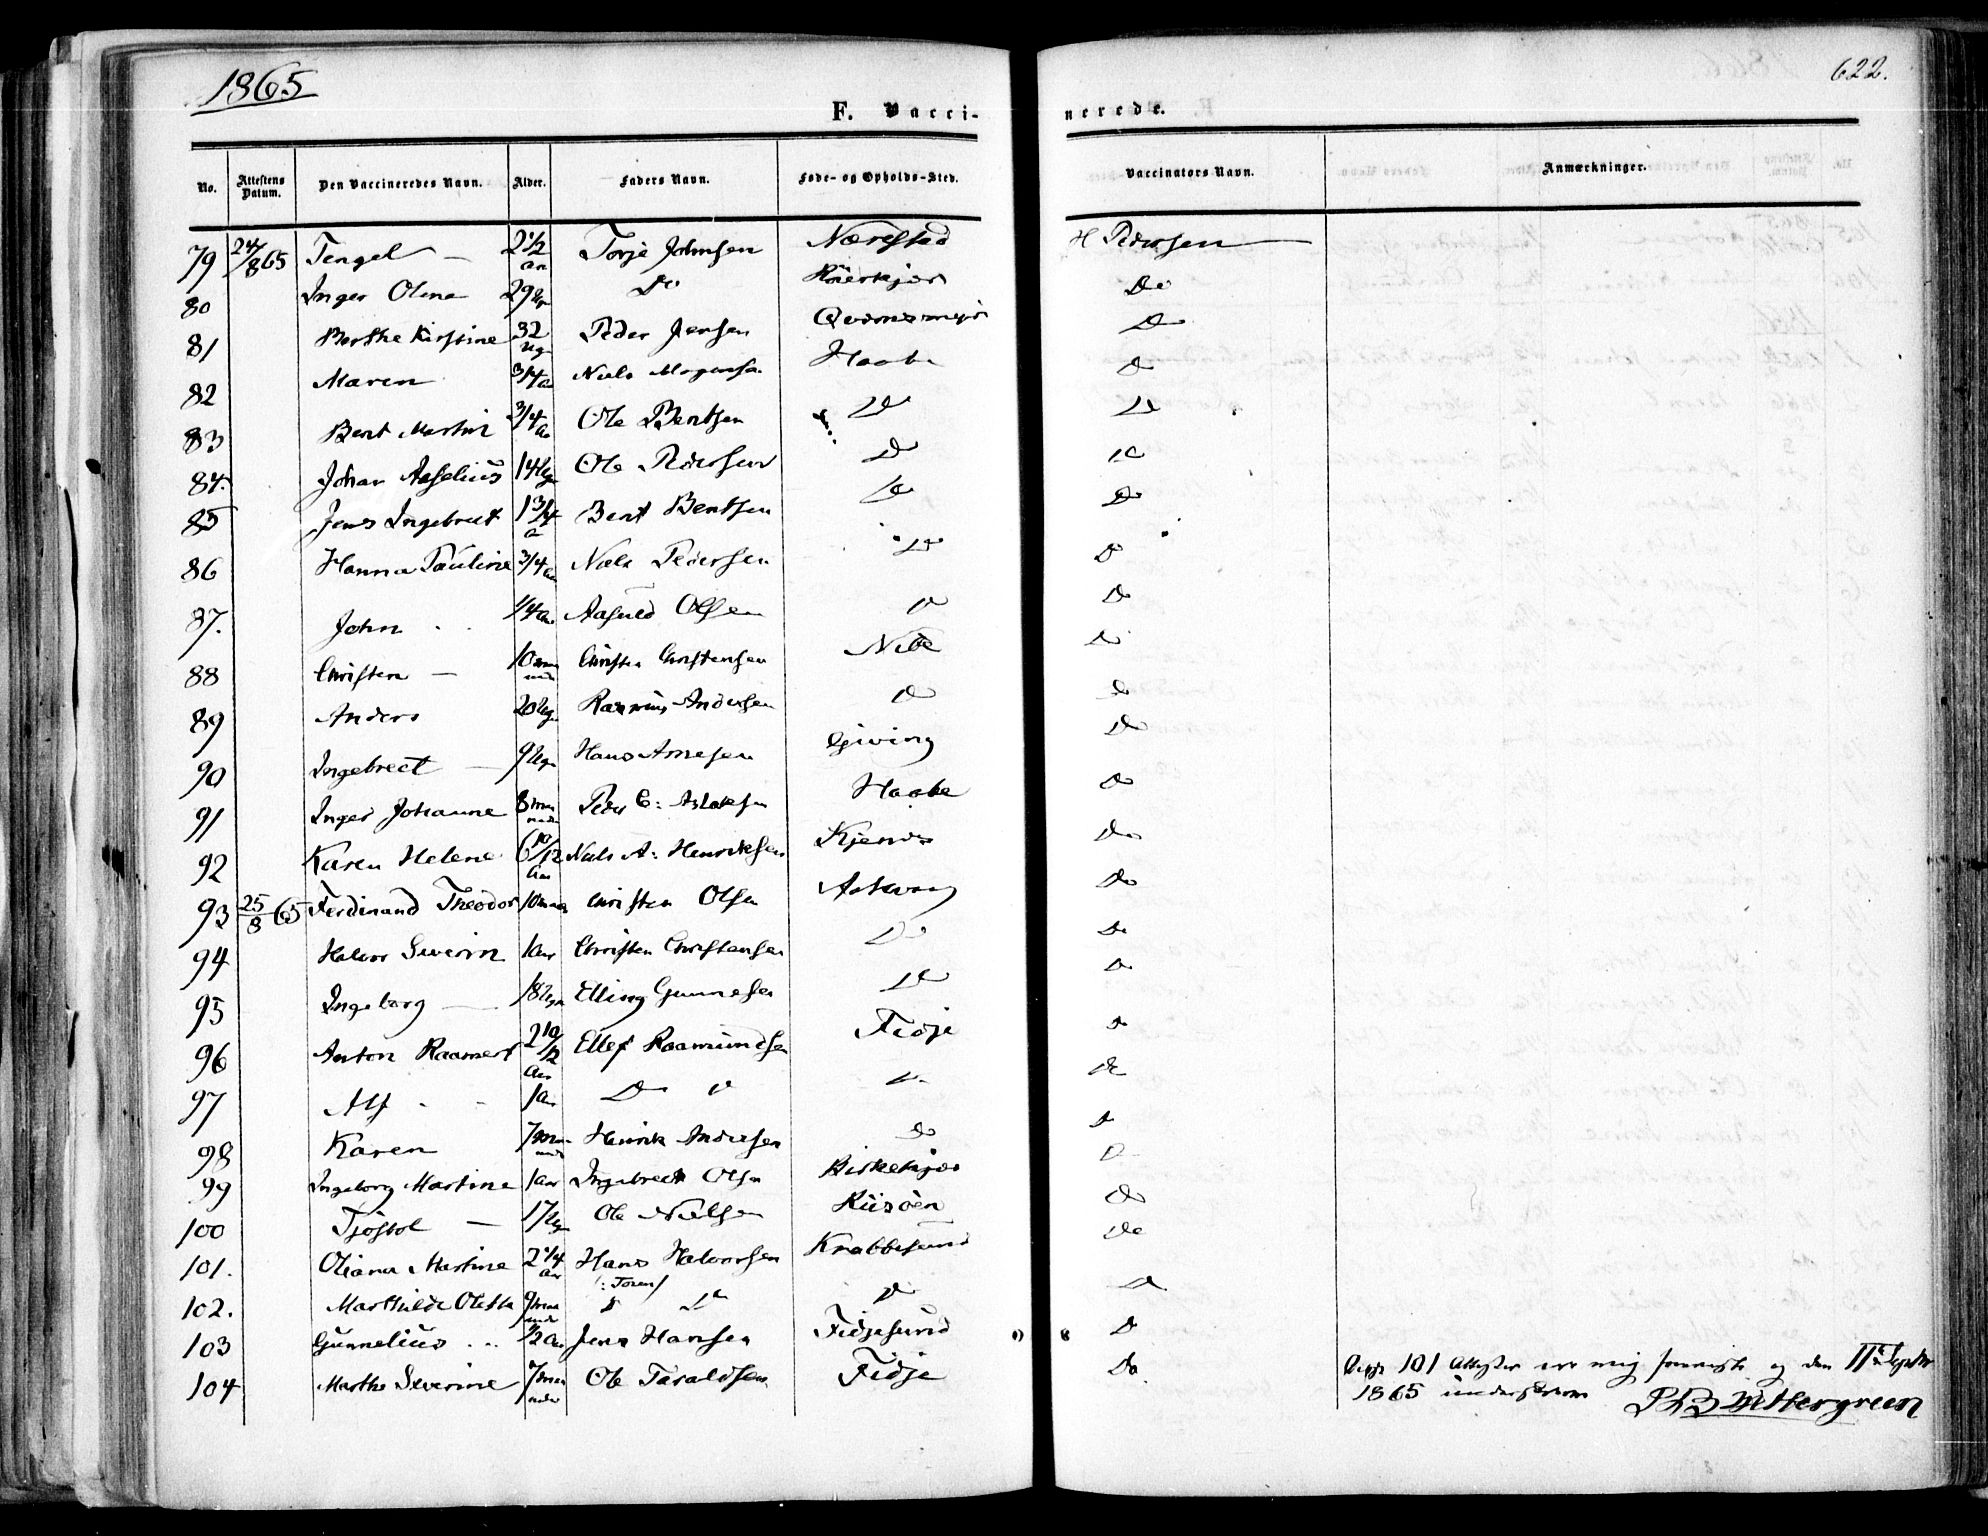 1865
622.
F. Vacci-
nerede.
No. Attestens Datum. Den Vaccineredes Navn. Alder. Faders Navn. Føde- og Opholds-Sted. Vaccinators Navn. Anmærkninger.
79 24/8 65 Tengel — 2 1/2 aar Torje Johnsen Næresstad H Pedersen
80 Inger Oline 29 Ugr Do Do
81 Berthe Kirstine 32 Ugr Peder Jensen Do
82 Maren 3/4 a Niels Mogensen Haabe Do
83 Bent Martin 3/4 a Ole Bentsen Do Do
84. Johan Aslelius 14 Ugr Ole Pedersen Do Do
85 Jens Ingebreet 1 3/4 a Bent Bentsen Do Do
86 Hanna Pauline 3/4 aar Niels Pedersen Do Do
87. John 1/4 aar Aasuld Olsen Do Do
88 Christen — 10 maaneder Christen Christensen Nibe Do
89 Anders 20 Ugr Rasmus Andersen Do Do
90 Ingebrect — 9 Ugr Hans Arnesen Giving Do
91 Inger Johanne 8 maaneder Peder C: Aslaksen Haabe Do
92 Karen Helene 6 10/12 Aar Niels A: Henriksen Kjenes Do
93 25/8 65 Ferdinand Theodor 10 maan Christen Olsen Askvaag Do
94 Halvor Severin 1 aar Christen Christensen Do Do
95 Ingeborg — 18 Ugr Elling Gunnesen Do Do
96 Anton Raamert 2 10/12 Aar Ellef Raamundsen Fidje Do
97 Alf 1 aar Do Do Do Do
98 Karen 7 maaneder Henrik Andersen Do Do
99 Ingeborg Martine 1 aar Ingebreth Olsen Birkekjær Do
100 Tjøstol — 17 Ugr Ole Nielsen Riisøen Do
101. Oliana Martine 2 1/4 aar Hans Halvorsen Krabbesund Do
102. Marthilde Olette 9 maaneder Do Do Do Do
103 Gunnelius 1/2 aar Jens Hansen Fidjesund Do
104 Marthe Severine 7 maaneder Ole Taraldsen Fidje Do
101 Attester ere mig og den 11te
1865